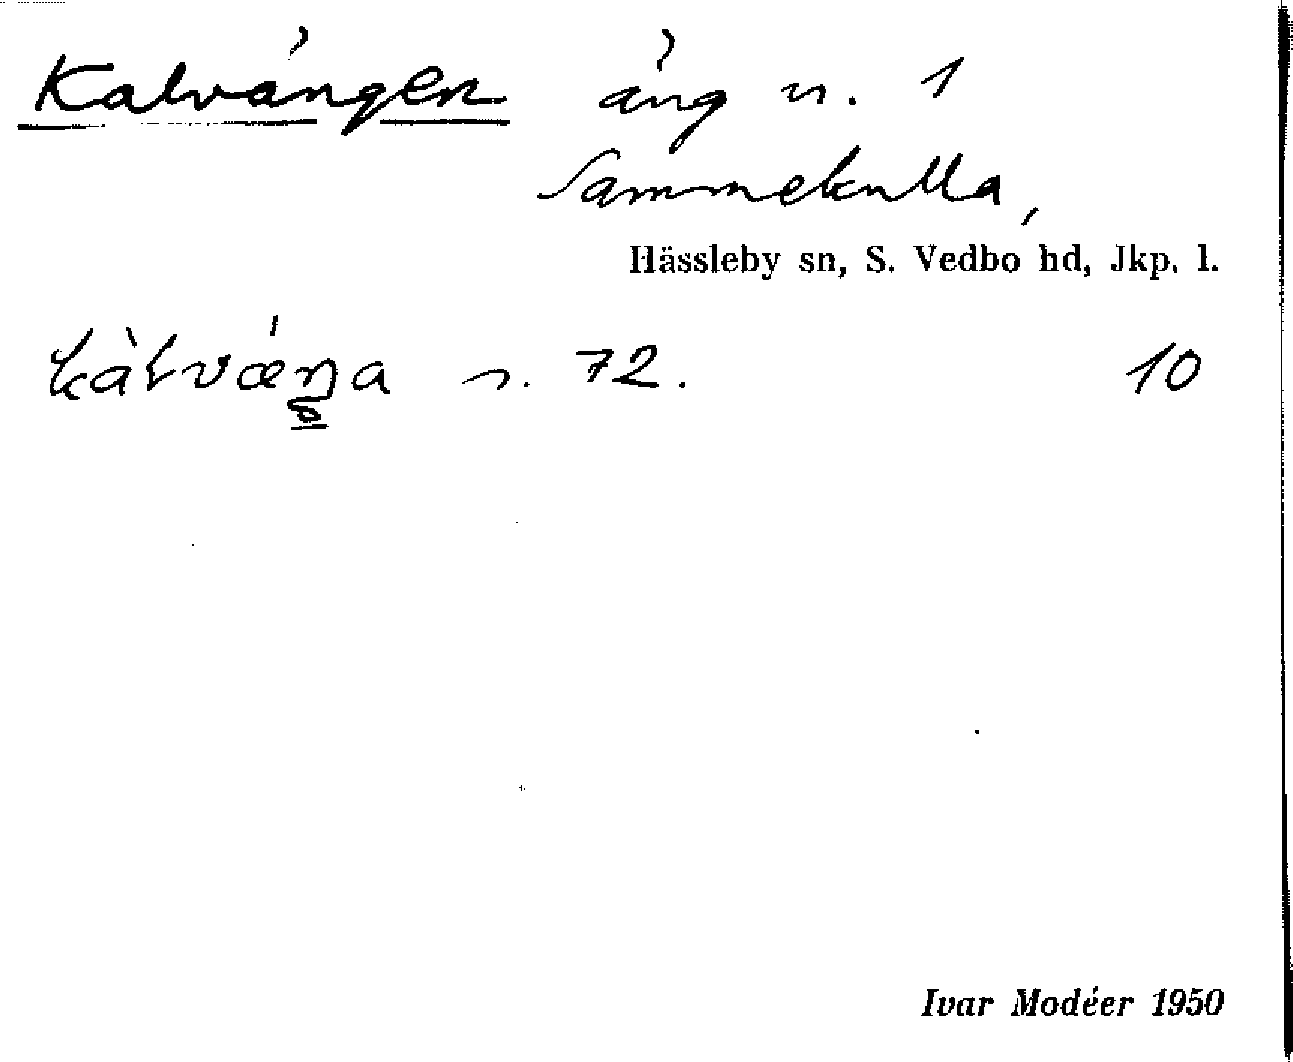 Kalvängen äng n. 1
Sammekulla,
Hässleby sn, S. Vedbo hd, Jkp. l.
n. 72. 10
Ivar Modéer 1950